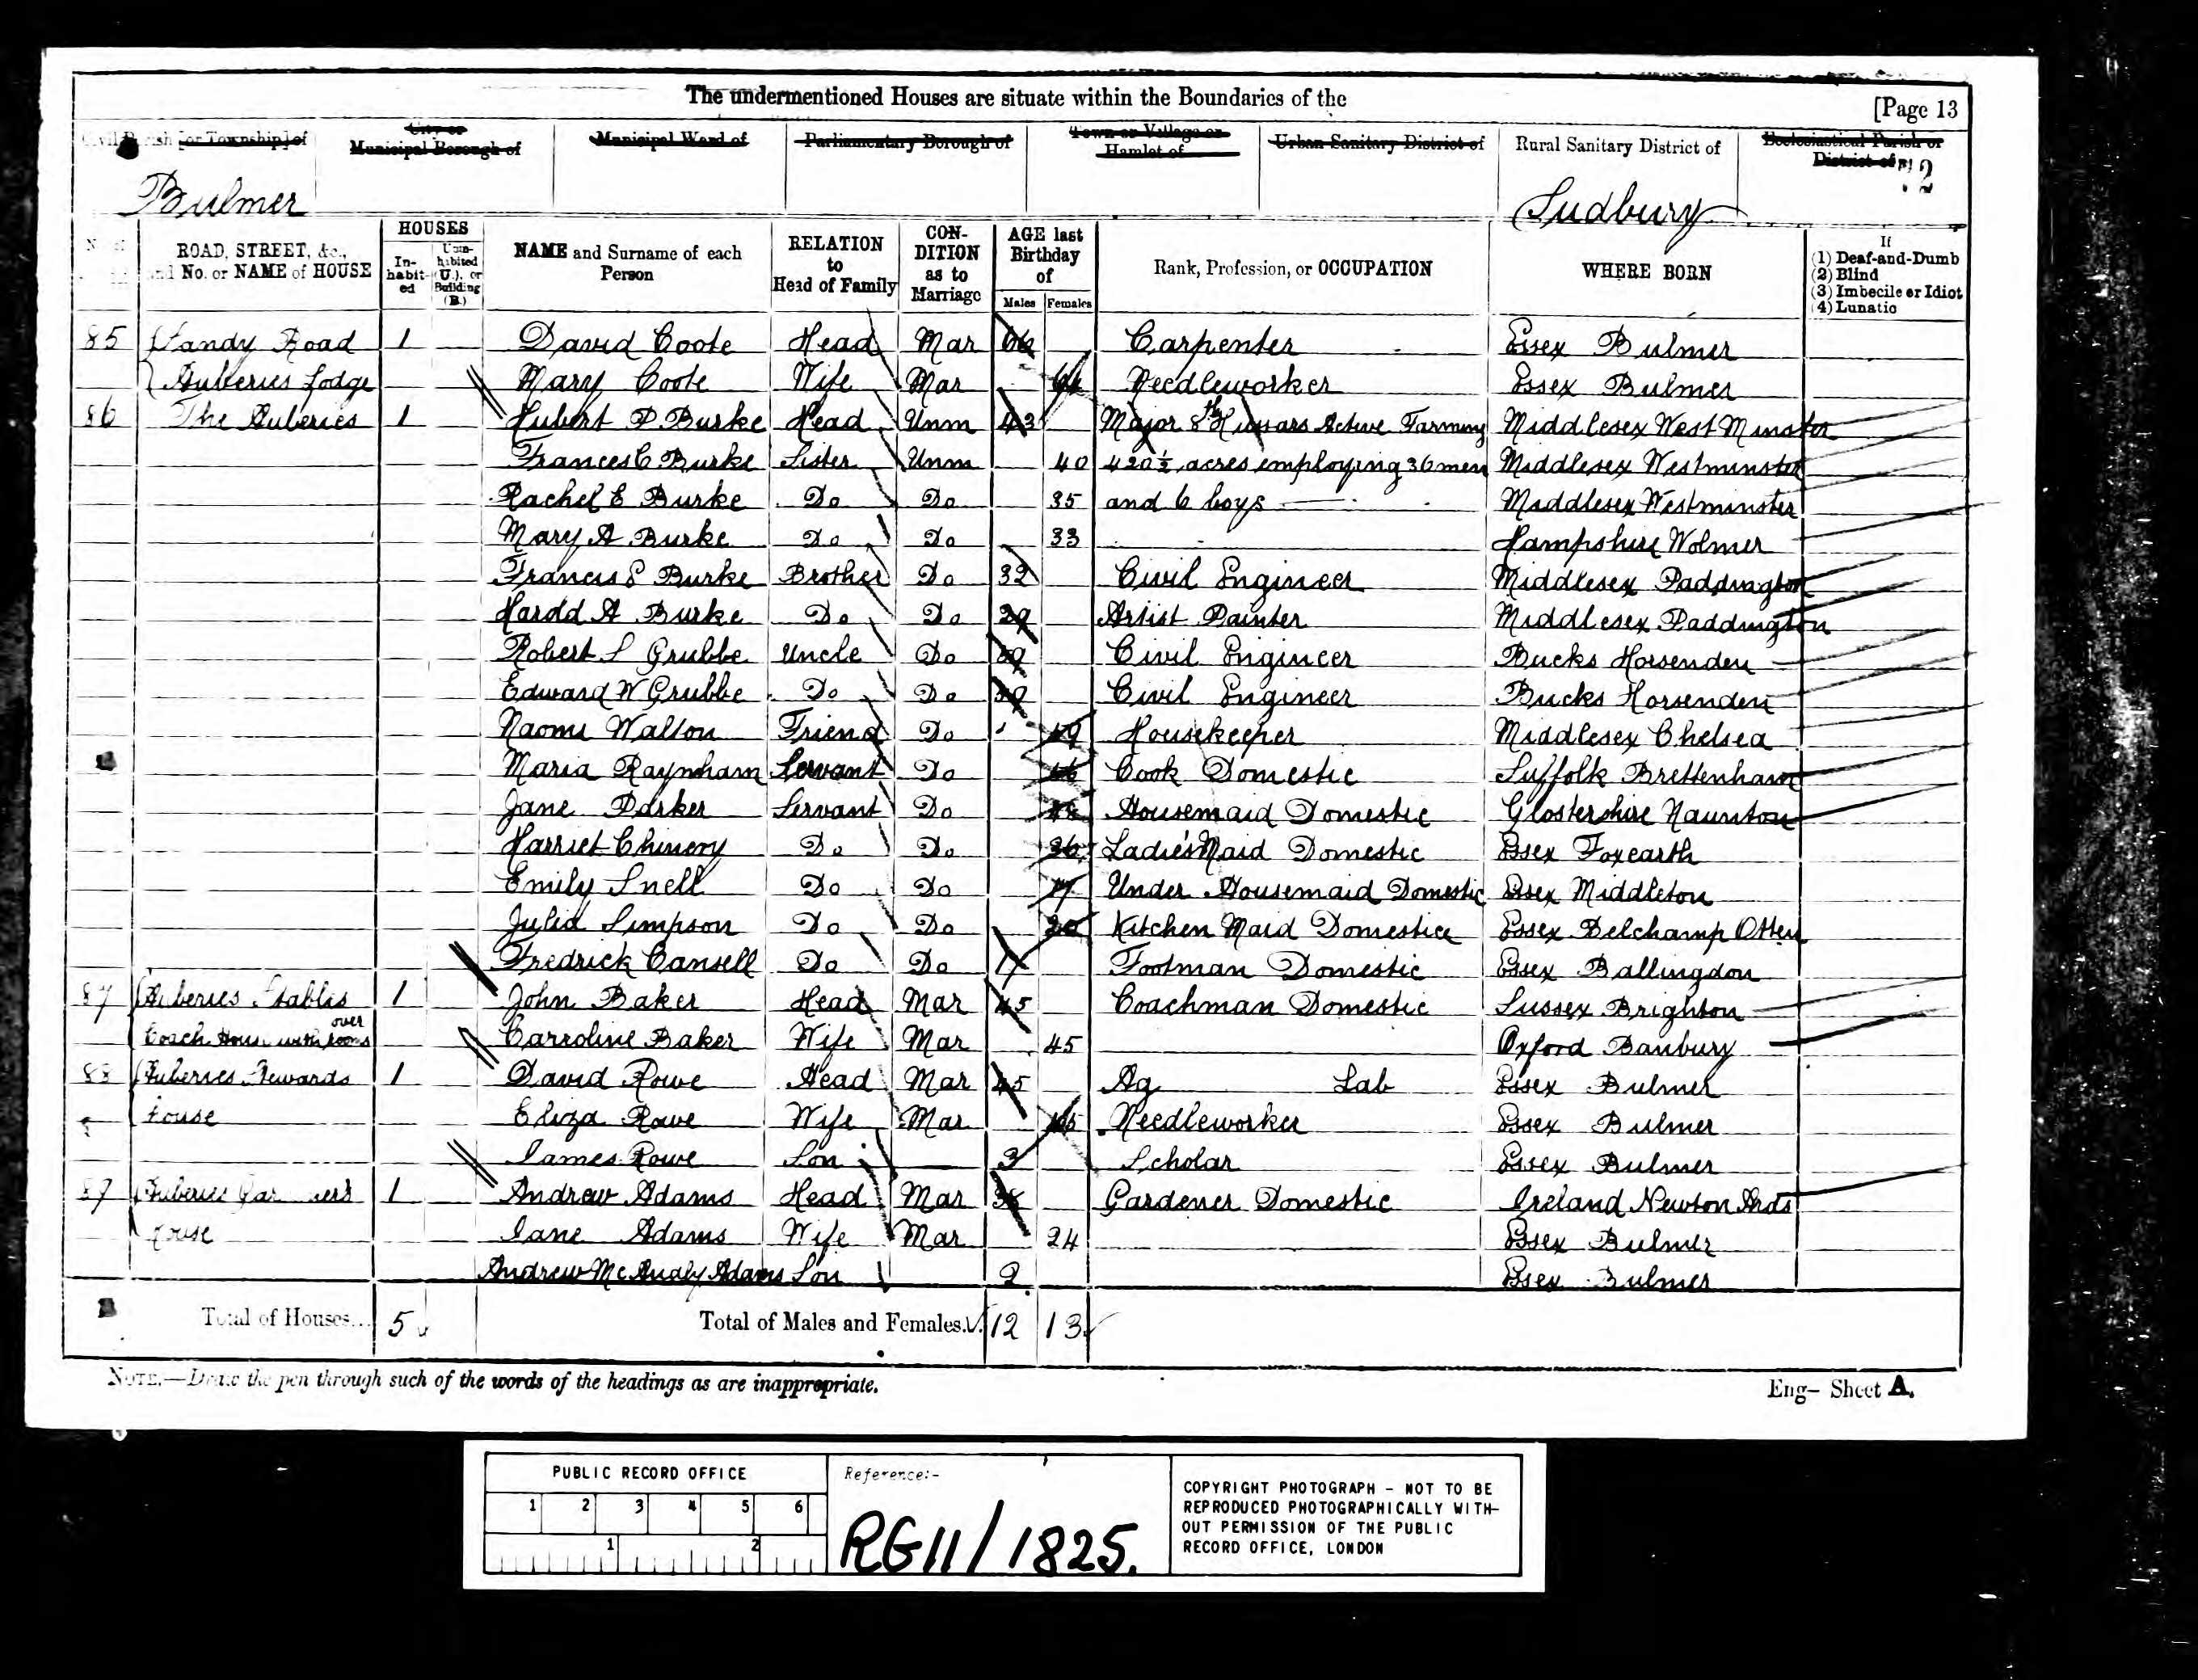 The undermentioned Houses are situate within the Boundaries of the
[Page 13
Civil Parish [or Township] of
City or Municipal Borough of
Municipal Ward of
Parliamentary Borough of
Town or Village or Hamlet of
Urban Sanitary District of
Rural Sanitary District of
Ecclesiastical Parish or District of
Bulmer
Sudbury
ROAD, STREET, &c., and No. or NAME of HOUSE
HOUSES
In-habit-ed
Unin-habited (U.), or Building (B.)
NAME and Surname of each Person
RELATION to Head of Family
CON-DITION as to Marriage
AGE last Birthday of
Males
Females
Rank, Profession, or OCCUPATION
WHERE BORN
If
(1) Deaf-and-Dumb
(2) Blind
(3) Imbecile or Idiot
(4) Lunatic
85 Sandy Road 1 David Coote Head Mar 66 Carpenter Essex Bulmer
Auberies Lodge Mary Coote Wife Mar Needleworker Essex Bulmer
86 The Auberies 1 Hubert P Burke Head Unm 43 Major 8th Hussars Active Farming Middlesex West Minster
Frances C Burke Sister Unm 40 420 ½ acres employing 36 men Middlesex Westminster
Rachel E Burke Do Do 35 and 6 boys Middlesex Westminster
Mary A Burke Do Do 33 Hampshire Wolmer
Francis E Burke Brother Do 32 Civil Engineer Middlesex Paddington
Harold A Burke Do Do 29 Artist Painter Middlesex Paddington
Robert S Grubbe Uncle Do Civil Engineer Bucks Horsenden
Edward W Grubbe Do Do Civil Engineer Bucks Horsenden
Naomi Walton Friend Do Housekeeper Middlesex Chelsea
Maria Raynham Servant Do Cook Domestic Suffolk Brettenham
Jane Parker Servant Do Housemaid Domestic Glostershire Naunton
Harriet Chinery Do Do 36 Ladie's Maid Domestic Essex Foxearth
Emily Snell Do Do 17 Under Housemaid Domestic Essex Middleton
Julia Simpson Do Do 20 Kitchen Maid Domestic Essex Belchamp Otten
Fredrick Cansell Do Do 17 Footman Domestic Essex Ballingdon
87 Auberies Stables 1 John Baker Head Mar 45 Coachman Domestic Sussex Brighton
Coach House with rooms over Carroline Baker Wife Mar 45 Oxford Banbury
88 Auberies Stewards 1 David Rowe Head Mar 45 Ag Lab Essex Bulmer
House Eliza Rowe Wife Mar 45 Needleworker Essex Bulmer
James Rowe Son 3 Scholar Essex Bulmer
89 Auberies Gardeners 1 Andrew Adams Head Mar Gardener Domestic Ireland Newton Ards
House Jane Adams Wife Mar 24 Essex Bulmer
Andrew Mc Adams Son 2 Essex Bulmer
Total of Houses... 5
Total of Males and Females.. 12 13
NOTE.—Draw the pen through such of the words of the headings as are inappropriate.
Eng— Sheet A.
PUBLIC RECORD OFFICE
1 2 3 4 5 6
1 2
Reference:-
RG11/1825.
COPYRIGHT PHOTOGRAPH - NOT TO BE
REPRODUCED PHOTOGRAPHICALLY WITH-
OUT PERMISSION OF THE PUBLIC
RECORD OFFICE, LONDON